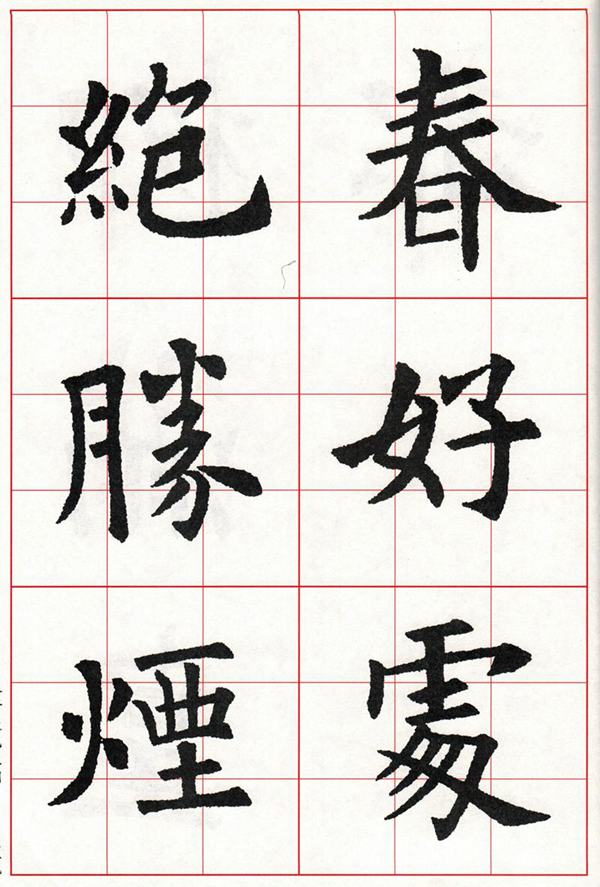 春好處
絶勝煙